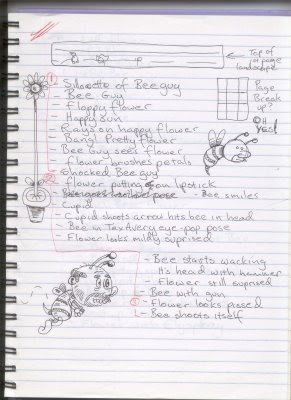 Top of
page
landscape
1
- Silhouette of Bee guy
- Bee Guy
- Floppy flower
- Happy sun
- Rays on happy flower
- Bang! Pretty flower
- Bee Guy sees flower
- flower brushes petals
2
- Shocked Bee guy
- flower putting on lipstick
- Bee smiles
- Cupid
- Cupid shoots arrow hits bee in head
- Bee in Tex Avery eye-pop pose
- Flower looks mildly suprised
Page
Break
up?
Oh
Yes!
- Bee starts wacking
it's head with hammer
- Flower still suprised
- Bee with gun
3
- Flower looks
- Bee shoots itself